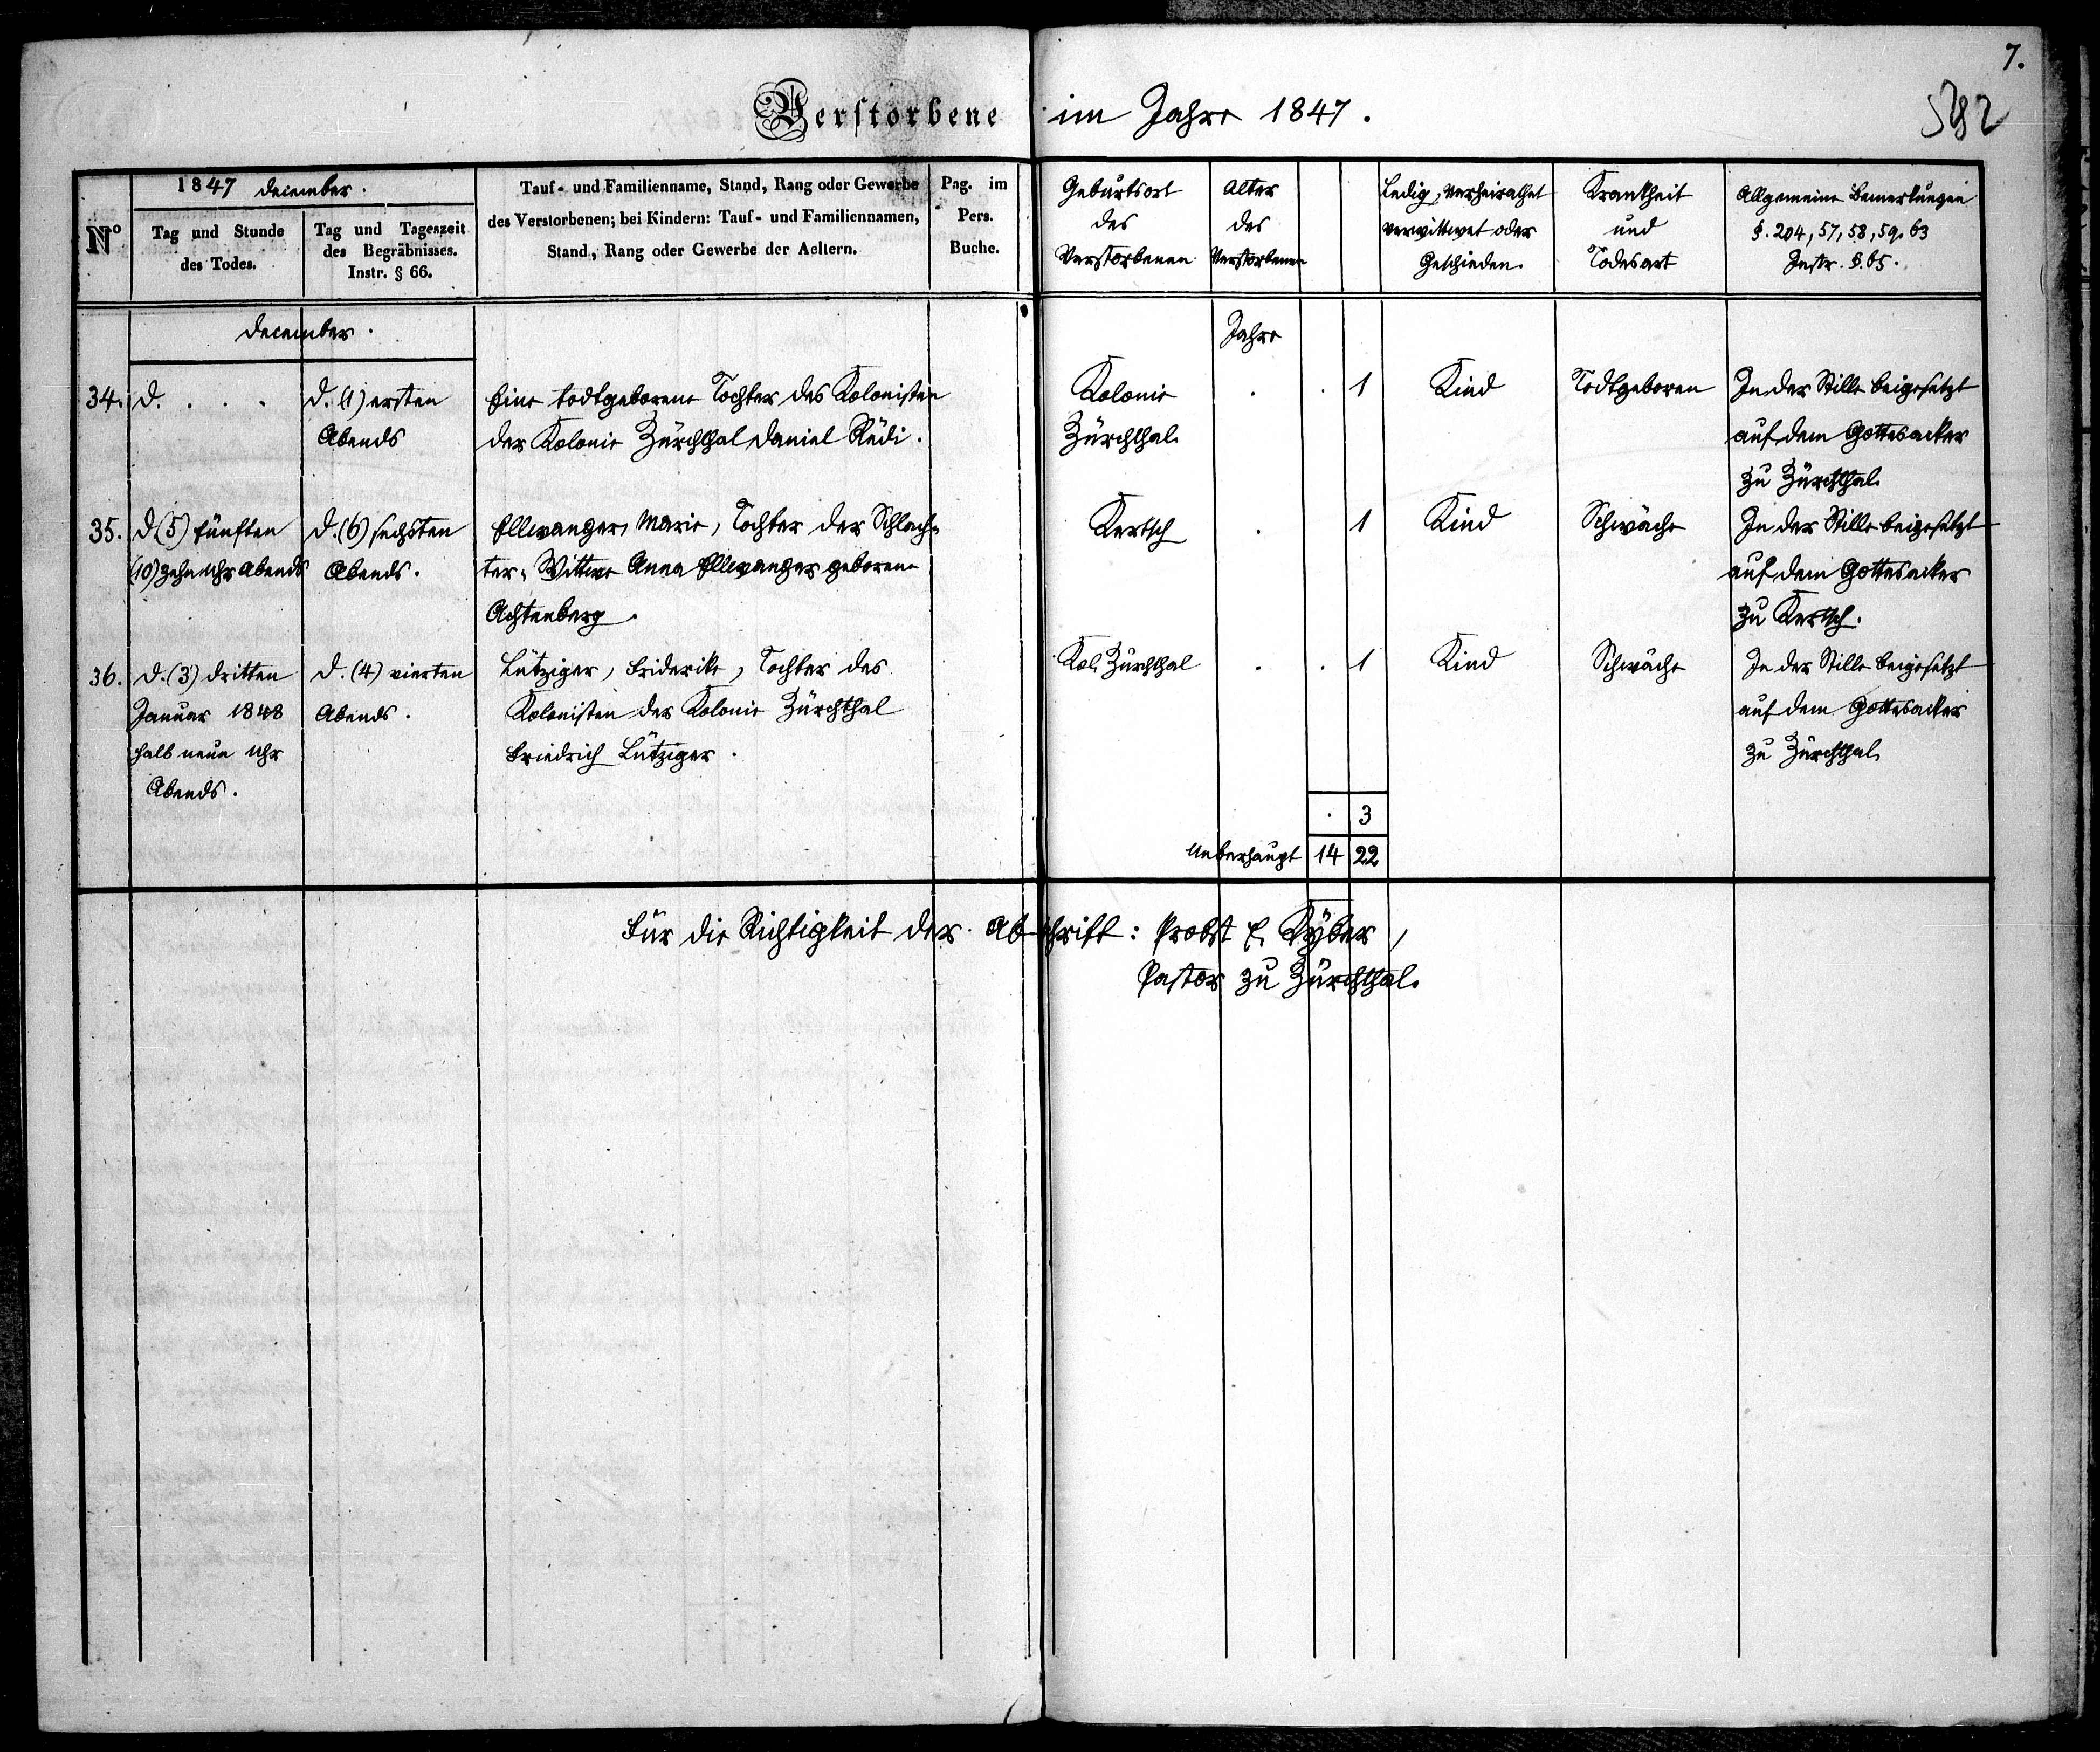 7.
592
Verstorbene im Jahre 1847.
No
1847 December.
Tag und Stunde
des Todes.
Tag und Tageszeit
des Begräbnisses.
Instr. § 66.
Tauf- und Familienname, Stand, Rang oder Gewerbe
des Verstorbenen; bei Kindern: Tauf- und Familiennamen,
Stand, Rang oder Gewerbe der Aeltern.
Pag. im
Pers.
Buche.
Geburtsort
des
Verstorbenen
Alter
des
Verstorbenen
Ledig, Verheirathet
verwittwet oder
Geschieden.
Krankheit
und
Todesart
Allgemeine Bemerkungen
§. 204, 57, 58, 59. 63
Instr. §. 65.
December.
Jahre
34.
d. . . .
d. (1) ersten
Abends
Eine todtgeborene Tochter des Kolonisten
der Kolonie Zürchthal Daniel Rüdi.
Kolonie
Zürchthal
. . 1
Kind
Todtgeboren
In der Stille beigesetzt
auf dem Gottesacker
zu Zürchthal.
35.
d. (5) fünften
(10) zehn Uhr Abends
d. (6) sechsten
Abends.
Ellwanger, Marie, Tochter der Schlach-
ter-Wittwe Anna Ellwanger geborene
Achtenberg.
Kertsch
. 1
Kind
Schwäche
In der Stille beigesetzt
auf dem Gottesacker
zu Kertsch.
36.
d. (3) dritten
Januar 1848
halb neun Uhr
Abends.
d. (4) vierten
Abends.
Lütziger, Friderike, Tochter des
Kolonisten der Kolonie Zürchthal
Friedrich Lütziger.
Kol. Zürchthal
. . 1
Kind
Schwäche
In der Stille beigesetzt
auf dem Gottesacker
zu Zürchthal.
. 3
Ueberhaupt 14 22
Für die Richtigkeit der Abschrift: Probst E. Kÿber,
Pastor zu Zürchthal.